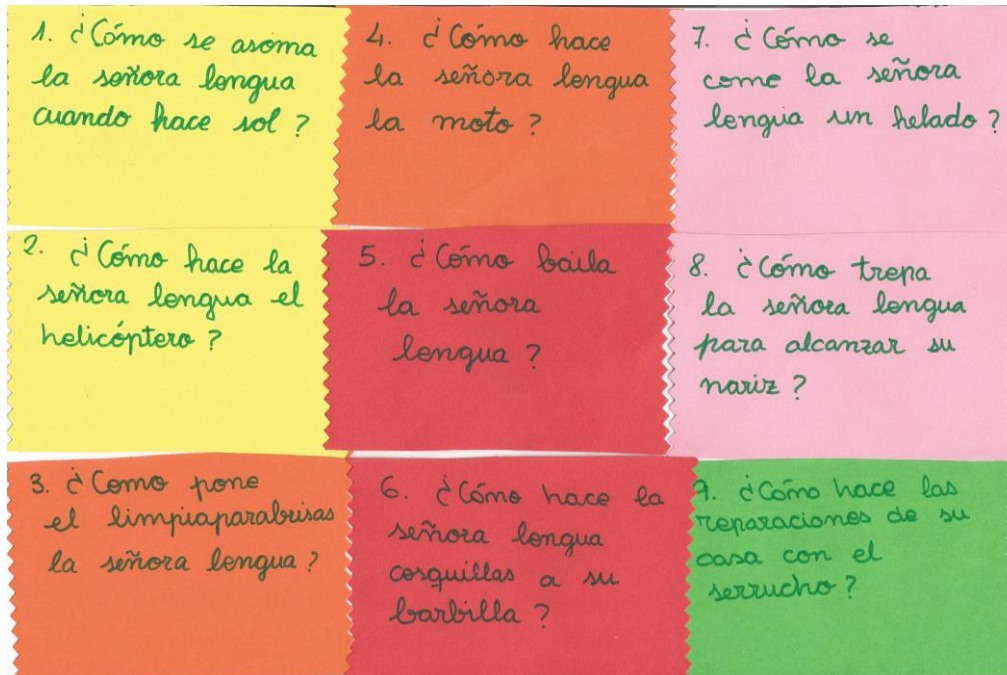 1. ¿Cómo se asoma
la señora lengua
cuando hace sol?
2. ¿Cómo hace la
señora lengua el
helicóptero?
3. ¿Como pone
el limpiaparabrisas
la señora lengua?
4. ¿Cómo hace
la señora lengua
la moto?
5. ¿Cómo baila
la señora
lengua?
6. ¿Cómo hace la
señora lengua
cosquillas a su
barbilla?
7. ¿Cómo se
come la señora
lengua un helado?
8. ¿Cómo trepa
la señora lengua
para alcanzar su
nariz?
9. ¿Cómo hace las
reparaciones de su
casa con el
serrucho?